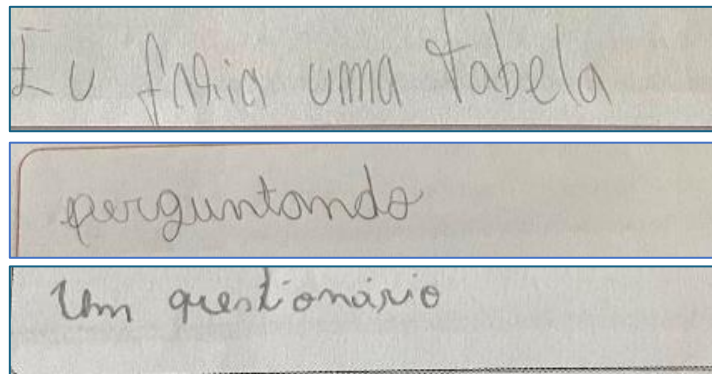 Eu faria uma tabela
perguntando
Um questionário